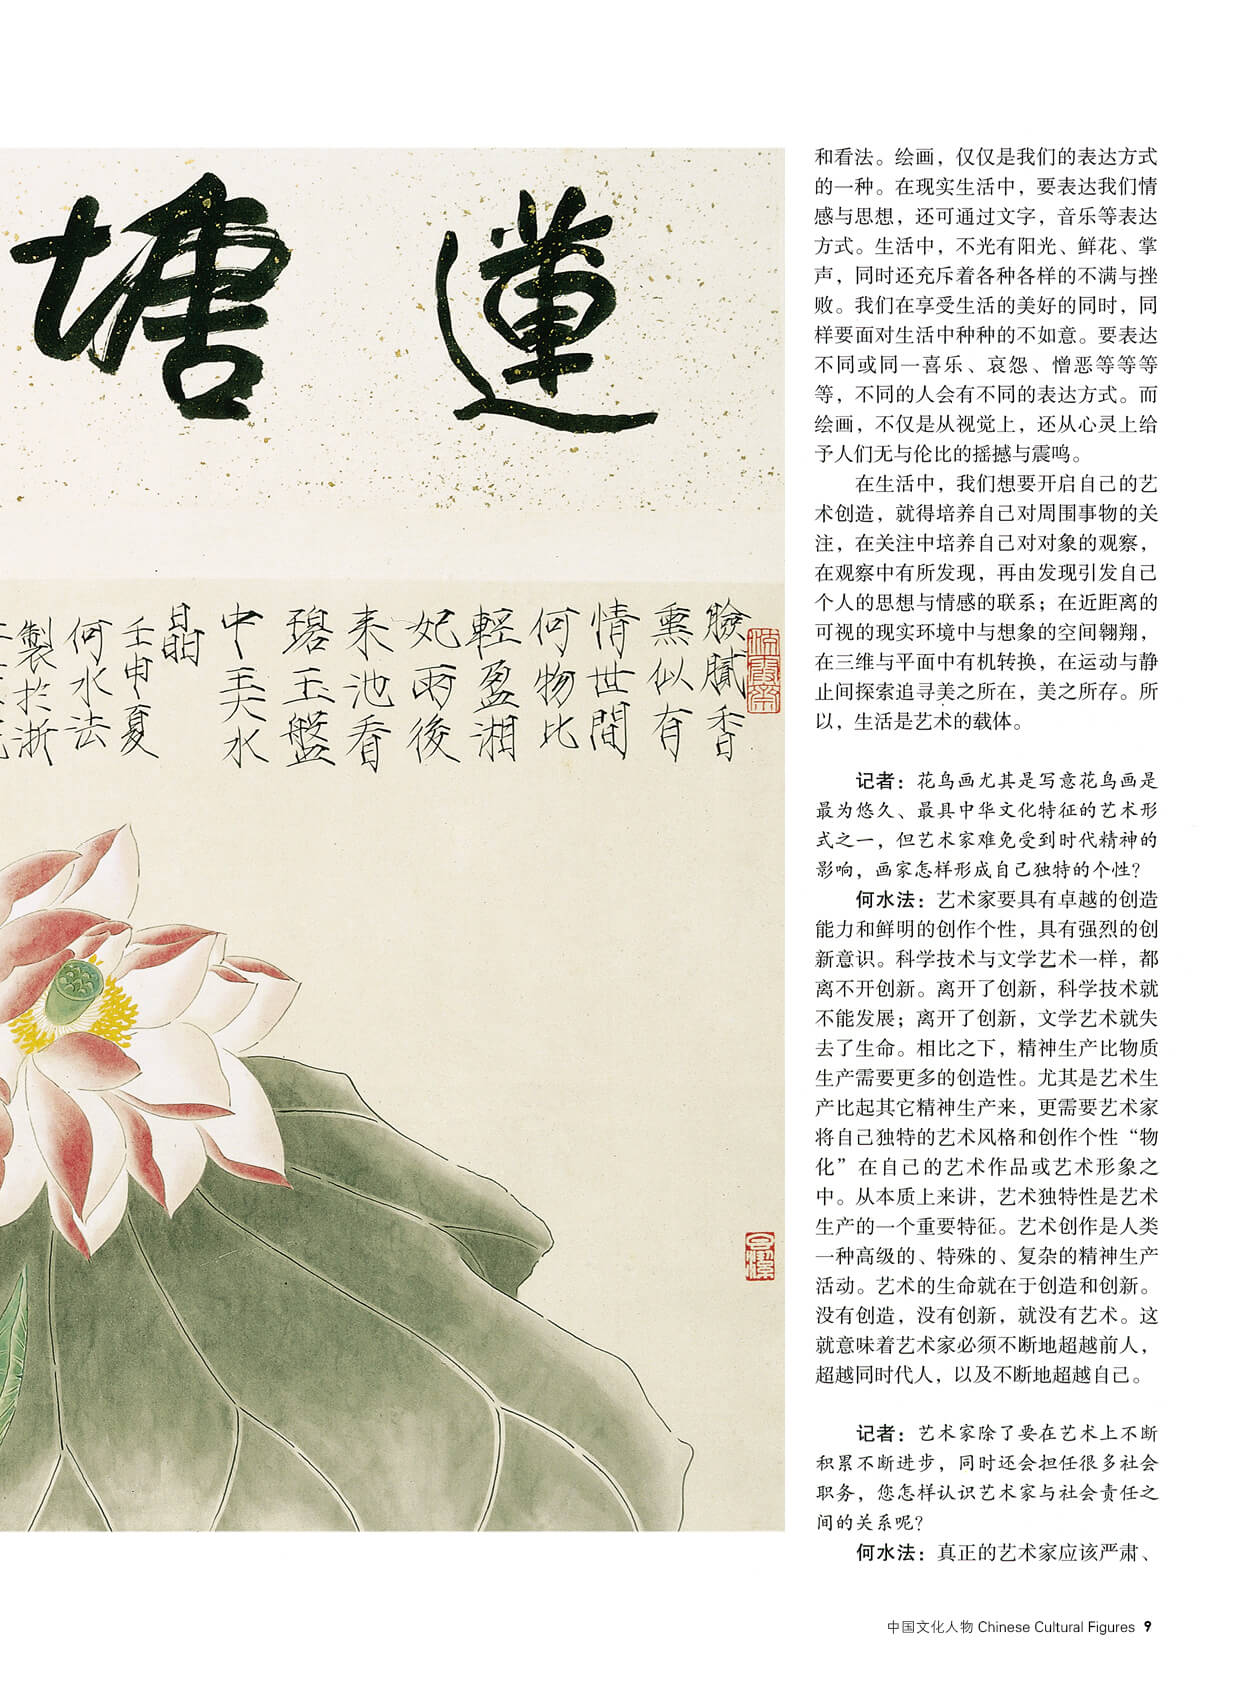 蓮塘
臉膩香
熏似有
情世間
何物比
輕盈湘
妃雨後
来池看
碧玉盤
中弄水
晶
壬申夏
何水法
製於浙
和看法。绘画，仅仅是我们的表达方式
的一种。在现实生活中，要表达我们情
感与思想，还可通过文字，音乐等表达
方式。生活中，不光有阳光、鲜花、掌
声，同时还充斥着各种各样的不满与挫
败。我们在享受生活的美好的同时，同
样要面对生活中种种的不如意。要表达
不同或同一喜乐、哀怨、憎恶等等等
等，不同的人会有不同的表达方式。而
绘画，不仅是从视觉上，还从心灵上给
予人们无与伦比的摇撼与震鸣。
在生活中，我们想要开启自己的艺
术创造，就得培养自己对周围事物的关
注，在关注中培养自己对对象的观察，
在观察中有所发现，再由发现引发自己
个人的思想与情感的联系；在近距离的
可视的现实环境中与想象的空间翱翔，
在三维与平面中有机转换，在运动与静
止间探索追寻美之所在，美之所存。所
以，生活是艺术的载体。
记者：花鸟画尤其是写意花鸟画是
最为悠久、最具中华文化特征的艺术形
式之一，但艺术家难免受到时代精神的
影响，画家怎样形成自己独特的个性？
何水法：艺术家要具有卓越的创造
能力和鲜明的创作个性，具有强烈的创
新意识。科学技术与文学艺术一样，都
离不开创新。离开了创新，科学技术就
不能发展；离开了创新，文学艺术就失
去了生命。相比之下，精神生产比物质
生产需要更多的创造性。尤其是艺术生
产比起其它精神生产来，更需要艺术家
将自己独特的艺术风格和创作个性“物
化”在自己的艺术作品或艺术形象之
中。从本质上来讲，艺术独特性是艺术
生产的一个重要特征。艺术创作是人类
一种高级的、特殊的、复杂的精神生产
活动。艺术的生命就在于创造和创新。
没有创造，没有创新，就没有艺术。这
就意味着艺术家必须不断地超越前人，
超越同时代人，以及不断地超越自己。
记者：艺术家除了要在艺术上不断
积累不断进步，同时还会担任很多社会
职务，您怎样认识艺术家与社会责任之
间的关系呢？
何水法：真正的艺术家应该严肃、
中国文化人物 Chinese Cultural Figures 9